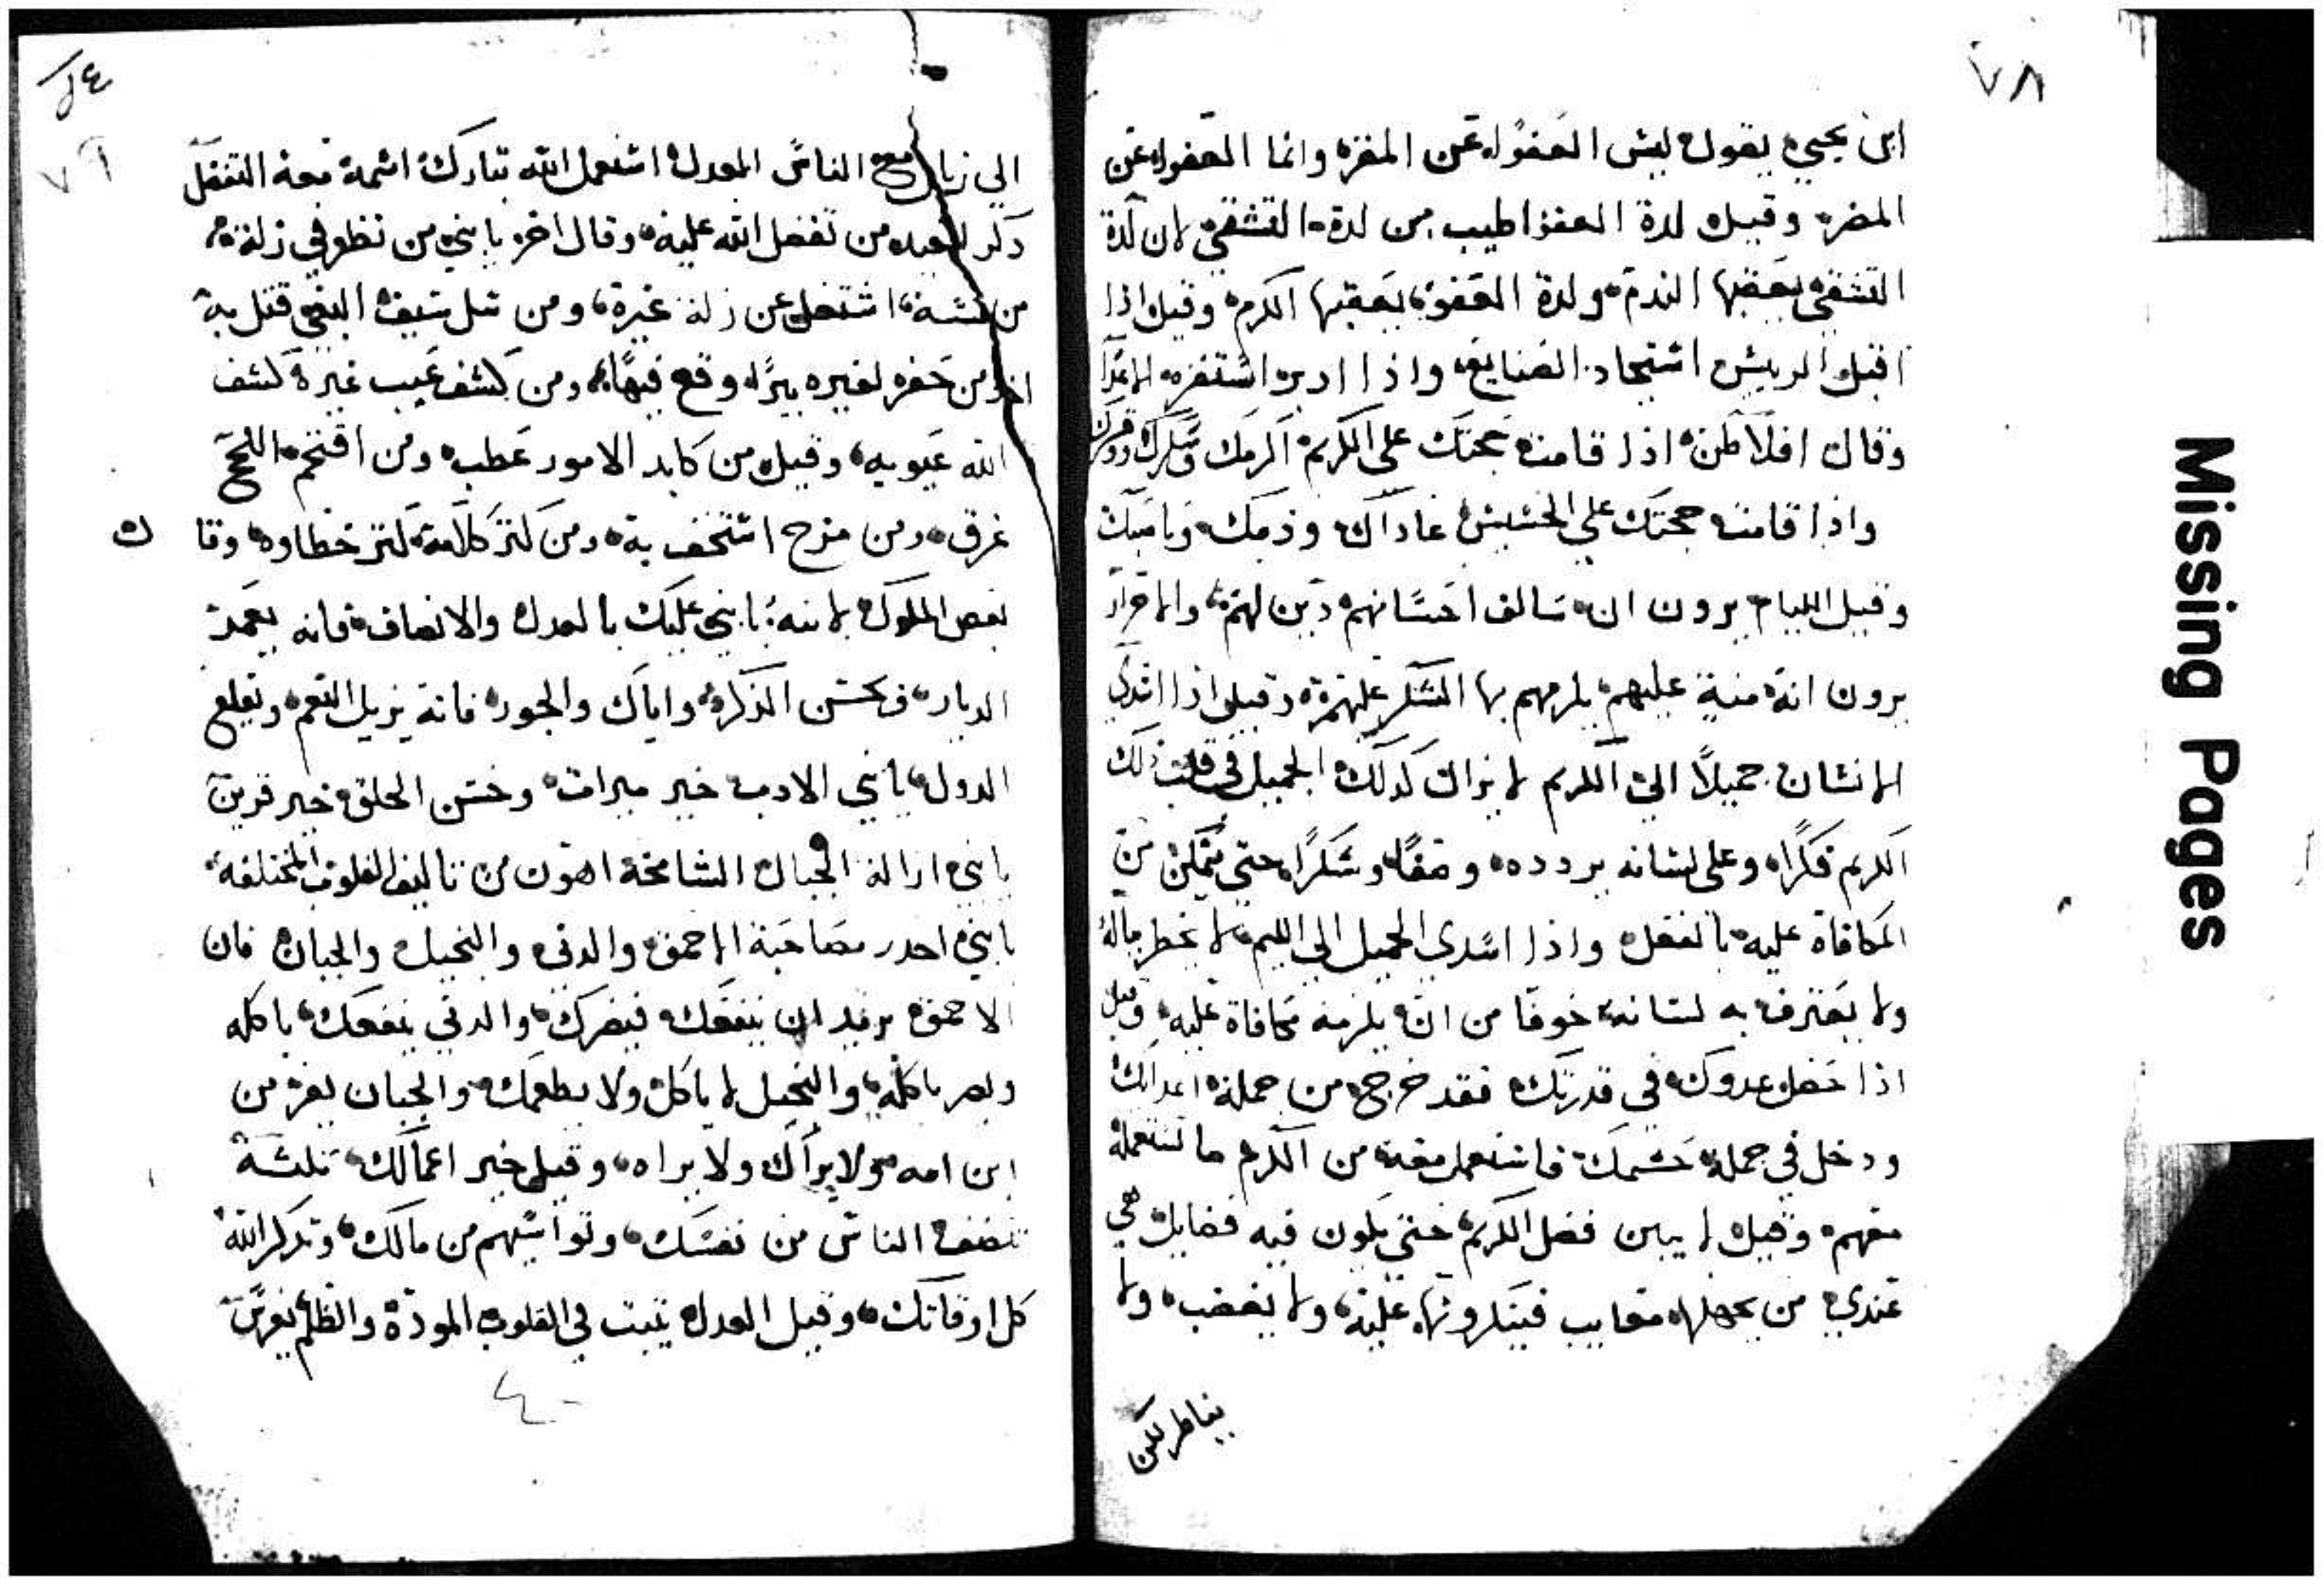 ٧٨
ابن يحيي يقول ليس العفو عن المقر وانما العفو عن
المضر وقيل لدة العفو اطيب من لدة التشفي لان لدة
التشفي يعقبها الندم ولدة العفو يعقبها الكرم وقيل اذا
اقبل الريس استجاد الصنايع واذا ادبر استغزر الاعدا
وقال افلاطن اذا قامت حجتك علي الكريم اكرمك
واذا قامت حجتك علي الخسيس عاداك وذمك
وقيل الليام يرون ان سالف احسانهم دين لهم والاحرار
يرون انه منة عليهم يلزمهم بها الشكر وقيل اذا اسدي
الانسان جميلا الي الكريم لا يزال كدلك الجميل في قلب دلك
الكريم فكرا وعلي لسانه يردده وصفا وشكرا حتي يتمكن من
المكافاة عليه بالفعل واذا اسدي الجميل الي الليم لا يخطر بباله
ولا يعترف به لسانه خوفا من ان يلزمه مكافاة عليه وقيل
اذا حصل عدوك في قدرتك فقد خرج من جملة اعدايك
ودخل في جملة حشمك فاستعمل معه من الكرم ما تستعمله
معهم وقيل لا يبين فضل الكريم حتي يكون فيه فضايل هي
عندي من يجهلها معايب فينكرونها عليه ولا يغضب ولا
يناظر لكن
Missing Pages
٧٩
الي زيارة الناس العدل استعمل الله تبارك اسمه معه التفضل
دكر لعبده من تفضل الله عليه وقال اخر يا بني من نظر في زلة
من نفسه اشتغل عن زلة غيره ومن سل سيف البغي قتل به
اخر من حفر لغيره بيرا وقع فيها ومن كشف عيب غيره كشف
الله عيوبه وقيل من كابد الامور عطب ومن اقتحم اللجج
غرق ومن مزح استخف به ومن كتر كلامه كتر خطاوه وقال
بعض الملوك لابنه يا بني عليك بالعدل والانصاف فانه يعمر
الديار وبحسن الذكر واياك والجور فانه يزيل النعم ويقلع
الدول يا بني الادب خير ميرات وحسن الخلق خير قرين
يا بني ازالة الجبال الشامخة اهون من تاليف القلوب المختلفة
يا بني احدر مصاحبة الاحمق والدني والبخيل والجبان فان
الاحمق يريد ان ينفعك فيضرك والدني ينفعك باكله
ويضر باكله والبخيل لا ياكل ولا يطعمك والجبان يفر من
ابن امه ولا يراك ولا يراه وقيل خير اعمالك تلتة
تنصف الناس من نفسك وتواسيهم من مالك وتدكر الله
كل اوقاتك وقيل العدل يتبت في القلوب المودة والظلم يغرس
٤٠